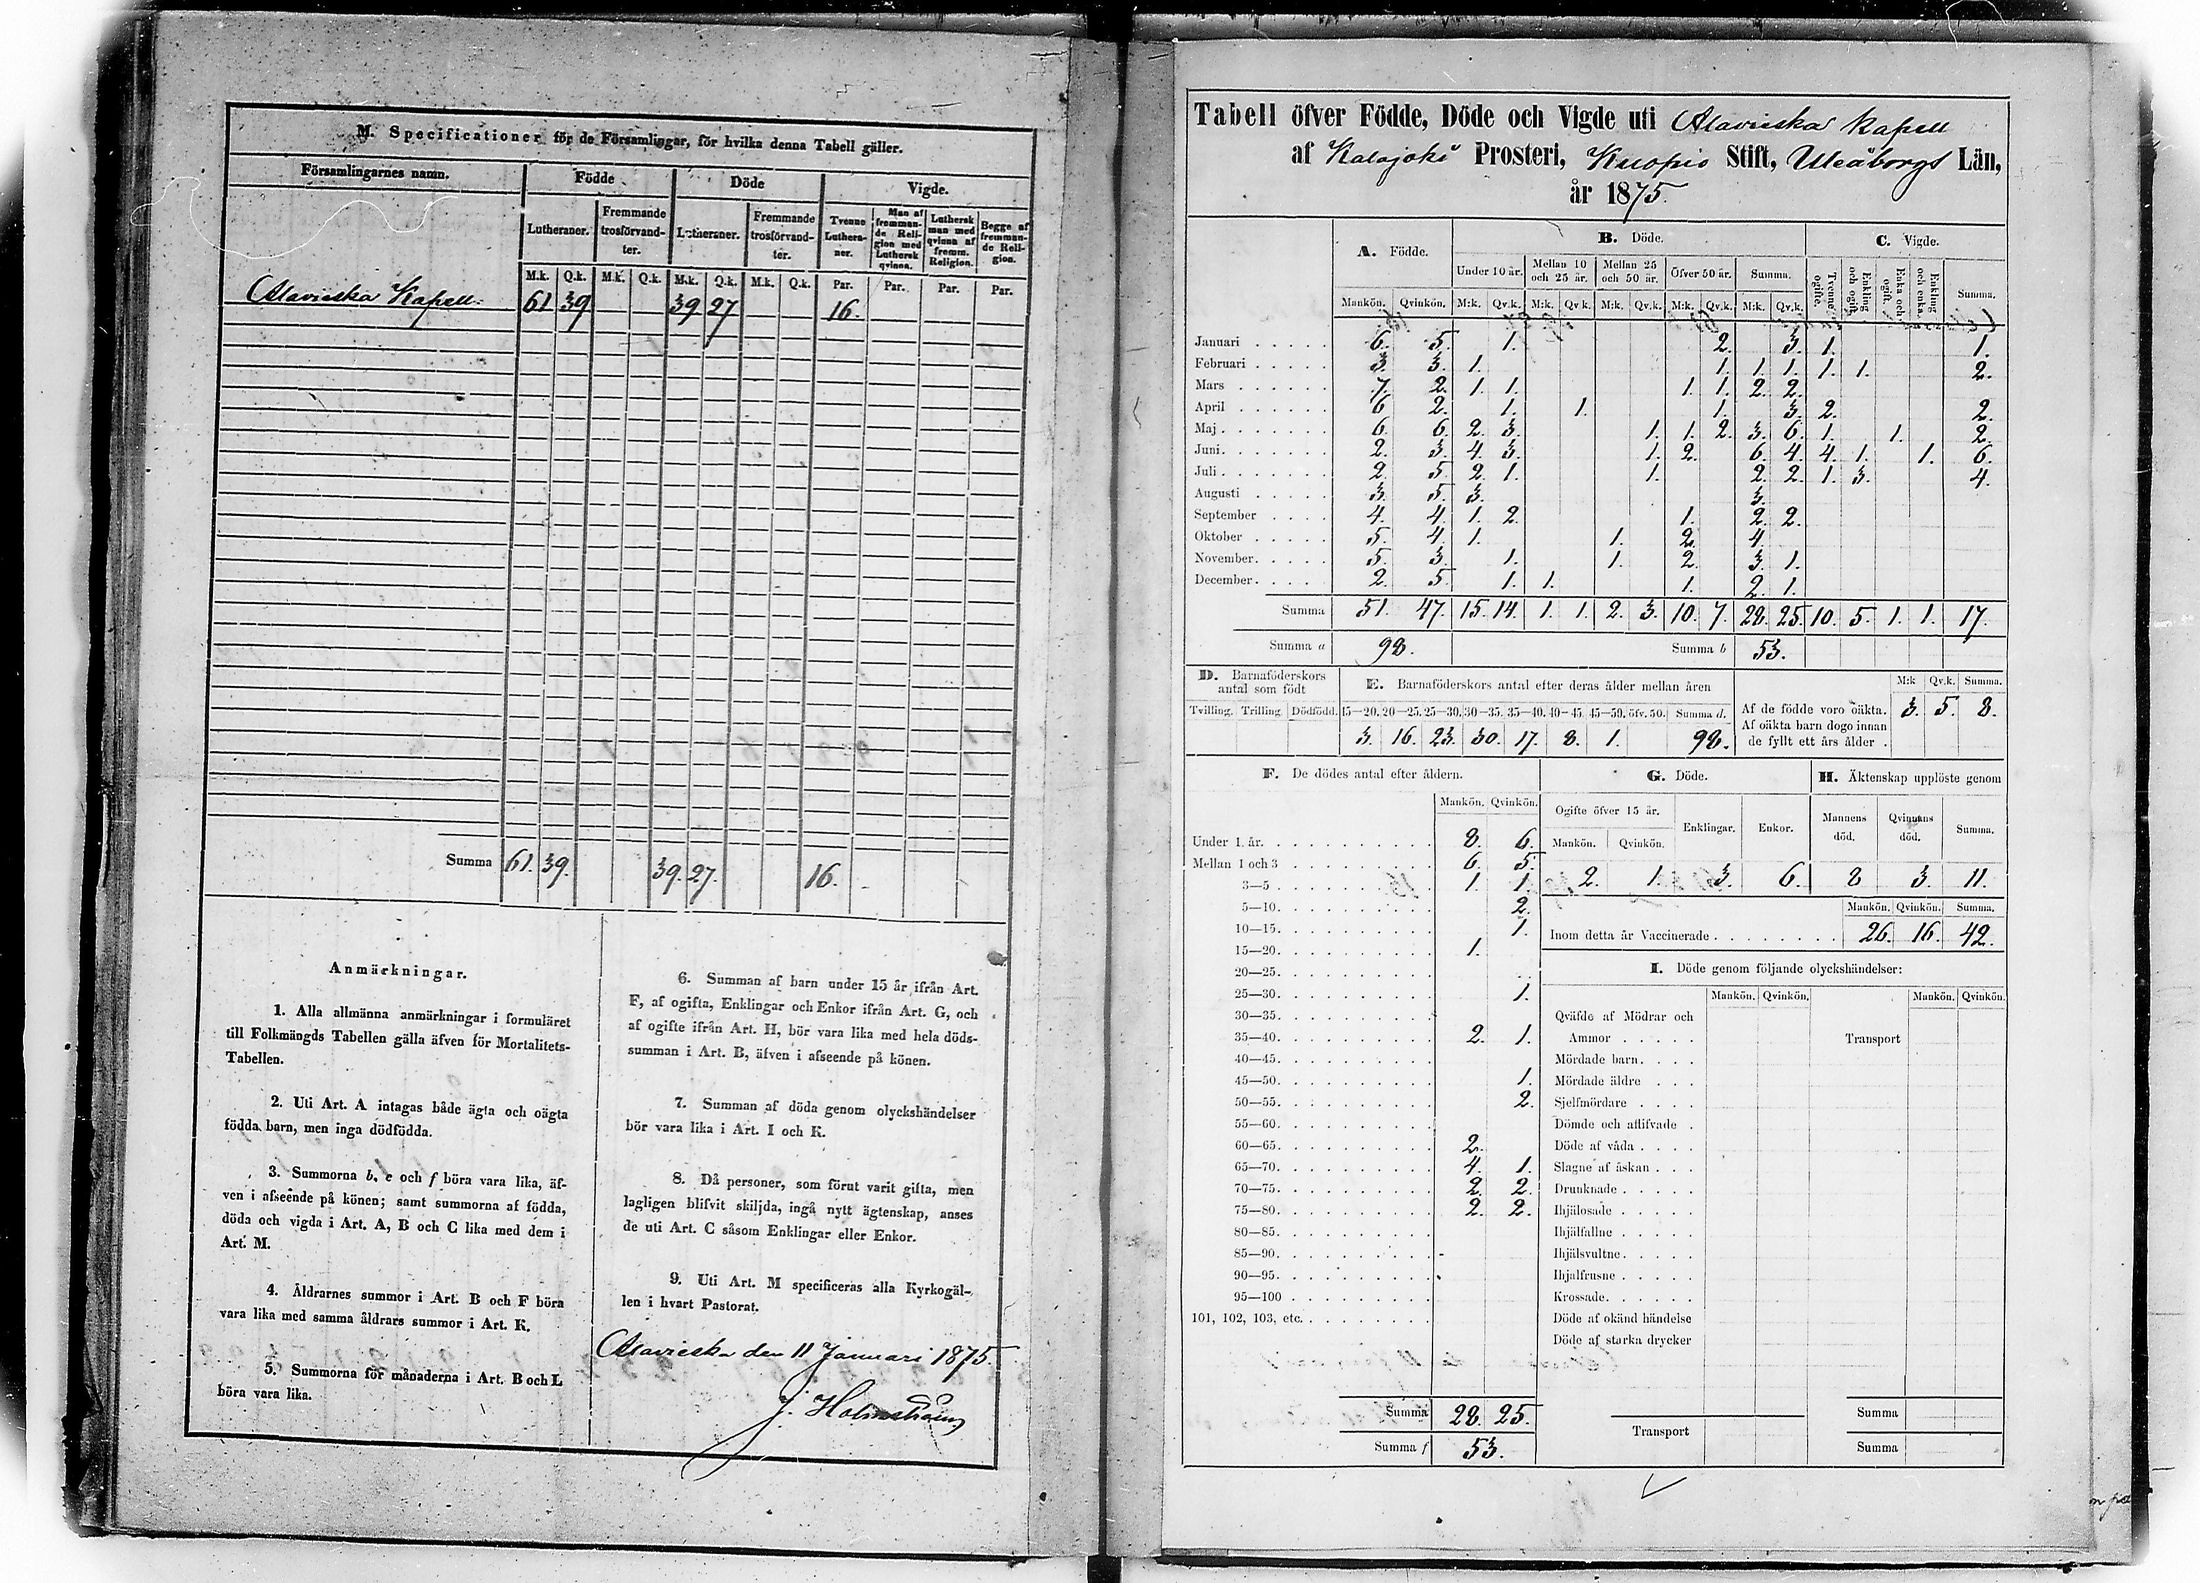 M. Specificationer för de Församlingar, för hvilka denna Tabell gäller.
Församlingarnes namn. Födde Döde Vigde.
Lutheraner. Fremmande trosförvandter. Lutheraner. Fremmande trosförvandter. Tvenne Lutheraner. Man af fremmande Religion med Luthersk qvinna. Luthersk man med qvinna af fremm. Religion. Begge af fremmande Religion.
M.k. Q.k. M.k. Q.k. M.k. Q.k. M.k. Q.k. Par. Par. Par. Par.
Alavieska Kapell: 61 39 39 27 16.
Summa 61. 39. 39. 27. 16.
Anmärkningar.
1. Alla allmänna anmärkningar i formuläret
till Folkmängds Tabellen gälla äfven för Mortalitets-
Tabellen.
2. Uti Art. A intagas både ägta och oägta
födda barn, men inga dödfödda.
3. Summorna b, e och f böra vara lika, äf-
ven i afseende på könen; samt summorna af födda,
döda och vigda i Art. A, B och C lika med dem i
Art. M.
4. Åldrarnes summor i Art. B och F böra
vara lika med samma åldrars summor i Art. K.
5. Summorna för månaderna i Art. B och L
böra vara lika.
6. Summan af barn under 15 år ifrån Art.
F, af ogifta, Enklingar och Enkor ifrån Art. G, och
af ogifte ifrån Art. H, bör vara lika med hela döds-
summan i Art. B, äfven i afseende på könen.
7. Summan af döda genom olyckshändelser
bör vara lika i Art. I och K.
8. Då personer, som förut varit gifta, men
lagligen blifvit skiljda, ingå nytt ägtenskap, anses
de uti Art. C såsom Enklingar eller Enkor.
9. Uti Art. M specificeras alla Kyrkogäl-
len i hvart Pastorat.
Alavieska den 11 Januari 1875.
J. Holmström
Tabell öfver Födde, Döde och Vigde uti Alavieska Kapell
af Kalajoki Prosteri, Kuopio Stift, Uleåborgs Län,
år 1875.
A. Födde. B. Döde. C. Vigde.
Under 10 år. Mellan 10 och 25 år. Mellan 25 och 50 år. Öfver 50 år. Summa. Tvenne ogifte. Enkling och ogift. Enka och ogift. Enkling och enka. Summa.
Mankön. Qvinkön. M:k. Qv.k. M:k. Qv.k. M:k. Qv.k. M:k. Qv.k. M:k. Qv.k.
Januari 6. 5. 1. 2. 3. 1. 1.
Februari 3. 3. 1. 1. 1. 1. 1. 1. 2.
Mars 7. 2. 1. 1. 1. 1. 2. 2.
April 6 2. 1. 1. 1. 3. 2. 2.
Maj 6. 6. 2. 3. 1. 1. 2. 3. 6. 1. 1. 2.
Juni 2. 3. 4. 3. 1. 2. 6. 4. 4. 1. 1. 6.
Juli 2. 5. 2. 1. 1. 2. 2. 1. 3. 4.
Augusti 3. 5. 3. 3.
September 4. 4. 1. 2. 1. 2. 2.
Oktober 5. 4. 1. 1. 2. 4.
November 5. 3. 1. 1. 2. 3. 1.
December 2. 5. 1. 1. 1. 2. 1.
Summa 51. 47. 15. 14. 1. 1. 2. 3. 10. 7. 28. 25. 10. 5. 1. 1. 17.
Summa a 98. Summa b 53.
D. Barnaföderskors antal som födt
Tvilling. Trilling. Dödfödd.
E. Barnaföderskors antal efter deras ålder mellan åren
15—20. 20—25. 25—30. 30—35. 35—40. 40—45. 45—50. öfv. 50. Summa d.
3. 16. 23. 30. 17. 8. 1. 98.
M:k Qv.k. Summa.
Af de födde voro oäkta. 3. 5. 8.
Af oäkta barn dogo innan
de fyllt ett års ålder .
F. De dödes antal efter åldern.
Mankön. Qvinkön.
Under 1. år. 8. 6.
Mellan 1 och 3 6. 5.
3—5 1. 1.
5—10. 2.
10—15. 1.
15—20. 1.
20—25.
25—30. 1.
30—35.
35—40. 2. 1.
40—45.
45—50. 1.
50—55. 2.
55—60.
60—65. 2.
65—70. 4. 1.
70—75. 2. 2.
75—80. 2. 2.
80—85.
85—90.
90—95.
95—100
101, 102, 103, etc.
Summa 28. 25.
Summa f 53.
G. Döde.
Ogifte öfver 15 år. Enklingar. Enkor.
Mankön. Qvinkön.
2. 1. 3. 6.
H. Äktenskap upplöste genom
Mannens död. Qvinnans död. Summa.
8 3. 11.
Mankön. Qvinkön. Summa.
Inom detta år Vaccinerade 26. 16. 42.
I. Döde genom följande olyckshändelser:
Mankön. Qvinkön. Mankön. Qvinkön.
Qväfde af Mödrar och
Ammor Transport
Mördade barn
Mördade äldre
Sjelfmördare
Dömde och aflifvade
Döde af våda
Slagne af åskan
Drunknade
Ihjälosade
Ihjälfallne
Ihjälsvultne
Ihjälfrusne
Krossade
Döde af okänd händelse
Döde af starka drycker
Transport
Summa
Summa